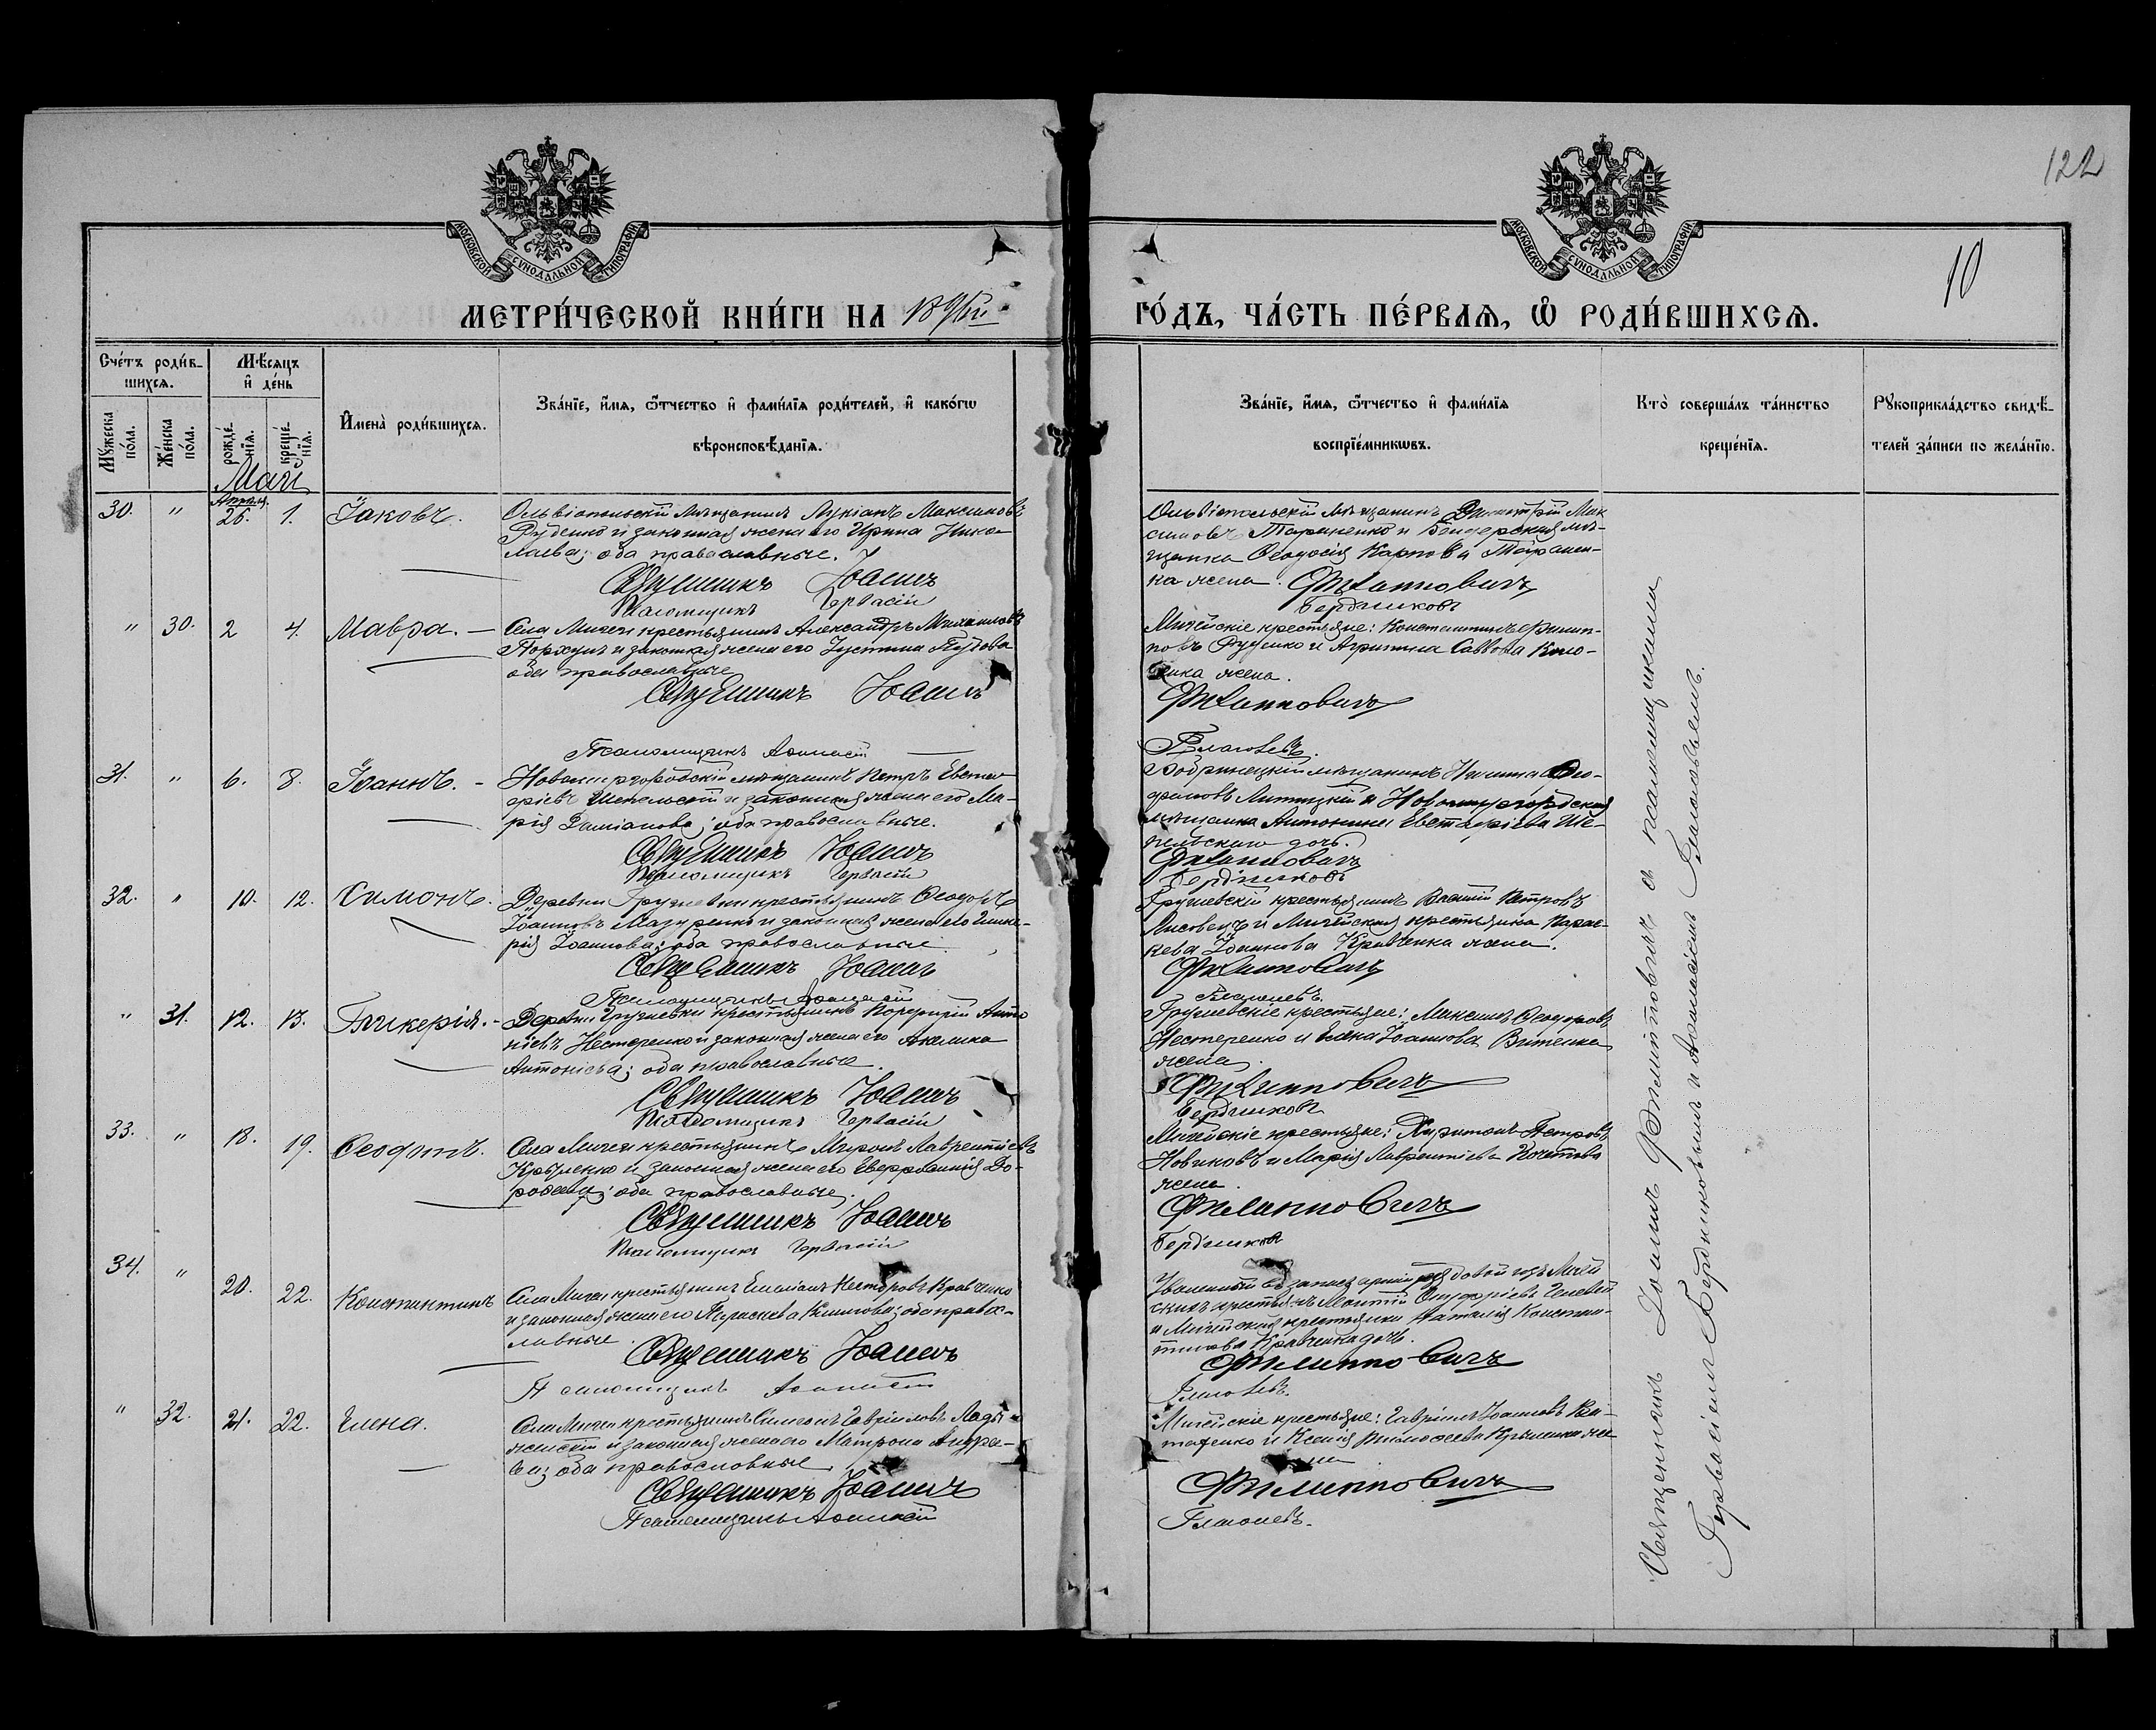 122
10
МОСКОВСКОЙ СѴНОДАЛЬНОЙ ТИПОГРАФІИ
МОСКОВСКОЙ СѴНОДАЛЬНОЙ ТИПОГРАФІИ
МЕТРИ́ЧЕСКОЙ КНИ́ГИ НА
ГО́ДЪ, ЧА́СТЬ ПЕ́РВАѦ, Ѽ РОДИ́ВШИХСѦ.
Сче́тъ роди́в-
шихсѧ.
Мѣ́сѧцъ
и҆ де́нь
Му́жеска по́ла.
Же́нска по́ла.
рожде́-
нїѧ.
креще́-
нїѧ.
И҆мена̀ роди́вшихсѧ.
Зва́нїе, и҆́мѧ, ѻ҆́тчество и҆ фами́лїѧ роди́телей, и҆ како́гѡ
вѣроисповѣ́данїѧ.
Зва́нїе, и҆́мѧ, ѻ҆́тчество и҆ фами́лїѧ
воспрїе́мникѡвъ.
Кто̀ соверша́лъ та́инство
креще́нїѧ.
Рꙋкоприкла́дство свидѣ́-
телей за́писи по жела́нїю.
Май
Апрѣля
30. " 26. 1. Іаковъ.
Ольвіопольскій мѣщанинъ Лукіанъ Максимовъ
Руденко и законная жена его Ирина Нико-
лаева; оба православные.
Священникъ Іоаннъ
Псаломщикъ Гервасій
Ольвіопольскій мѣщанинъ Димитрій Мак
симовъ Тараненко и Бендерская мѣ-
щанка Ѳеодосія Карпова Таранен-
ка жена.
Филипповичъ
Бердниковъ
" 30. 2 4. Мавра.
Села Мигеи крестьянинъ Александръ Михаиловъ
и законная жена его Іустина
оба православные
Священникъ Іоаннъ
Псаломщикъ Аѳанасій
Мигейскіе крестьяне: Константинъ Филип-
повъ Руденко и Агрипина Саввова
жена.
Филипповичъ
Глаголевъ.
31. " 6. 8. Іоаннъ.
Новомиргородскій мѣщанинъ Петръ Евста-
фіевъ и законная жена его Ма-
рія Даміанова; оба православные.
Священникъ Іоаннъ
Псаломщикъ Гервасій
Бобринецкій мѣщанинъ Никита
и Новомиргородская
мѣщанка Антонина Евстафіева
дочь.
Филипповичъ
Бердниковъ
32. " 10. 12. Симонъ.
Деревни Грушевки крестьянинъ Ѳеодоръ
Іоанновъ Мазуренко и законная жена его
Іоаннова; оба православные
Священникъ Іоаннъ
Псаломщикъ Аѳанасій
Грушевскій крестьянинъ Василій Петровъ
Лисовецъ и Мигейская крестьянка Парас-
кева Іоаннова Кравченка жена.
Филипповичъ
Глаголевъ.
" 31. 12. 13. Гликерія.
Деревни Грушевки крестьянинъ Порфирій Анто
ніевъ Нестеренко и законная жена его Акилина
Антоніева; оба православные.
Священникъ Іоаннъ
Псаломщикъ Гервасій
Грушевскіе крестьяне: Максимъ Ѳеодоровъ
Нестеренко и Елена Іоаннова
жена
Филипповичъ
Бердниковъ
33. " 18. 19. Ѳеодотъ.
Села Мигеи крестьянинъ Миронъ Лаврентіевъ
и законная жена его Евфросинія До-
роѳеева; оба православные.
Священникъ Іоаннъ
Псаломщикъ Гервасій
Мигейскіе крестьяне: Харитонъ Петровъ
Новиковъ и Марія Лаврентіева
жена.
Филипповичъ
Бердниковъ
34. " 20. 22. Константинъ
Села Мигеи крестьянинъ Емиліанъ Несторовъ Кравченко
и законная жена его Параскева Климова; оба правос-
лавные.
Священникъ Іоаннъ
Псаломщикъ Аѳанасій
рядовой изъ Мигей
скихъ крестьянъ Онуфріевъ
и Мигейская крестьянка Наталія Констан-
тинова Кравченка дочь.
Филипповичъ
Глаголевъ.
" 32. 21. 22. Елена.
Села Мигеи крестьянинъ Симеонъ Гавріиловъ Лады-
женскій и законная жена его Матрона Андре-
ева; оба православные
Священникъ Іоаннъ
Псаломщикъ Аѳанасій
Мигейскіе крестьяне: Гавріилъ Іоанновъ
и Ксенія Тимоѳеева
Филипповичъ
Глаголевъ.
Священникъ Іоаннъ Филипповичъ съ псаломщиками
Гервасіемъ Бердниковымъ и Аѳанасіемъ Глаголевымъ.